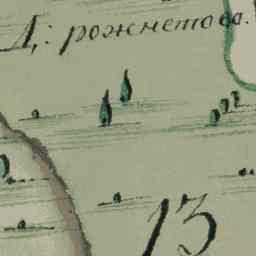 Д: рожнетова.
13